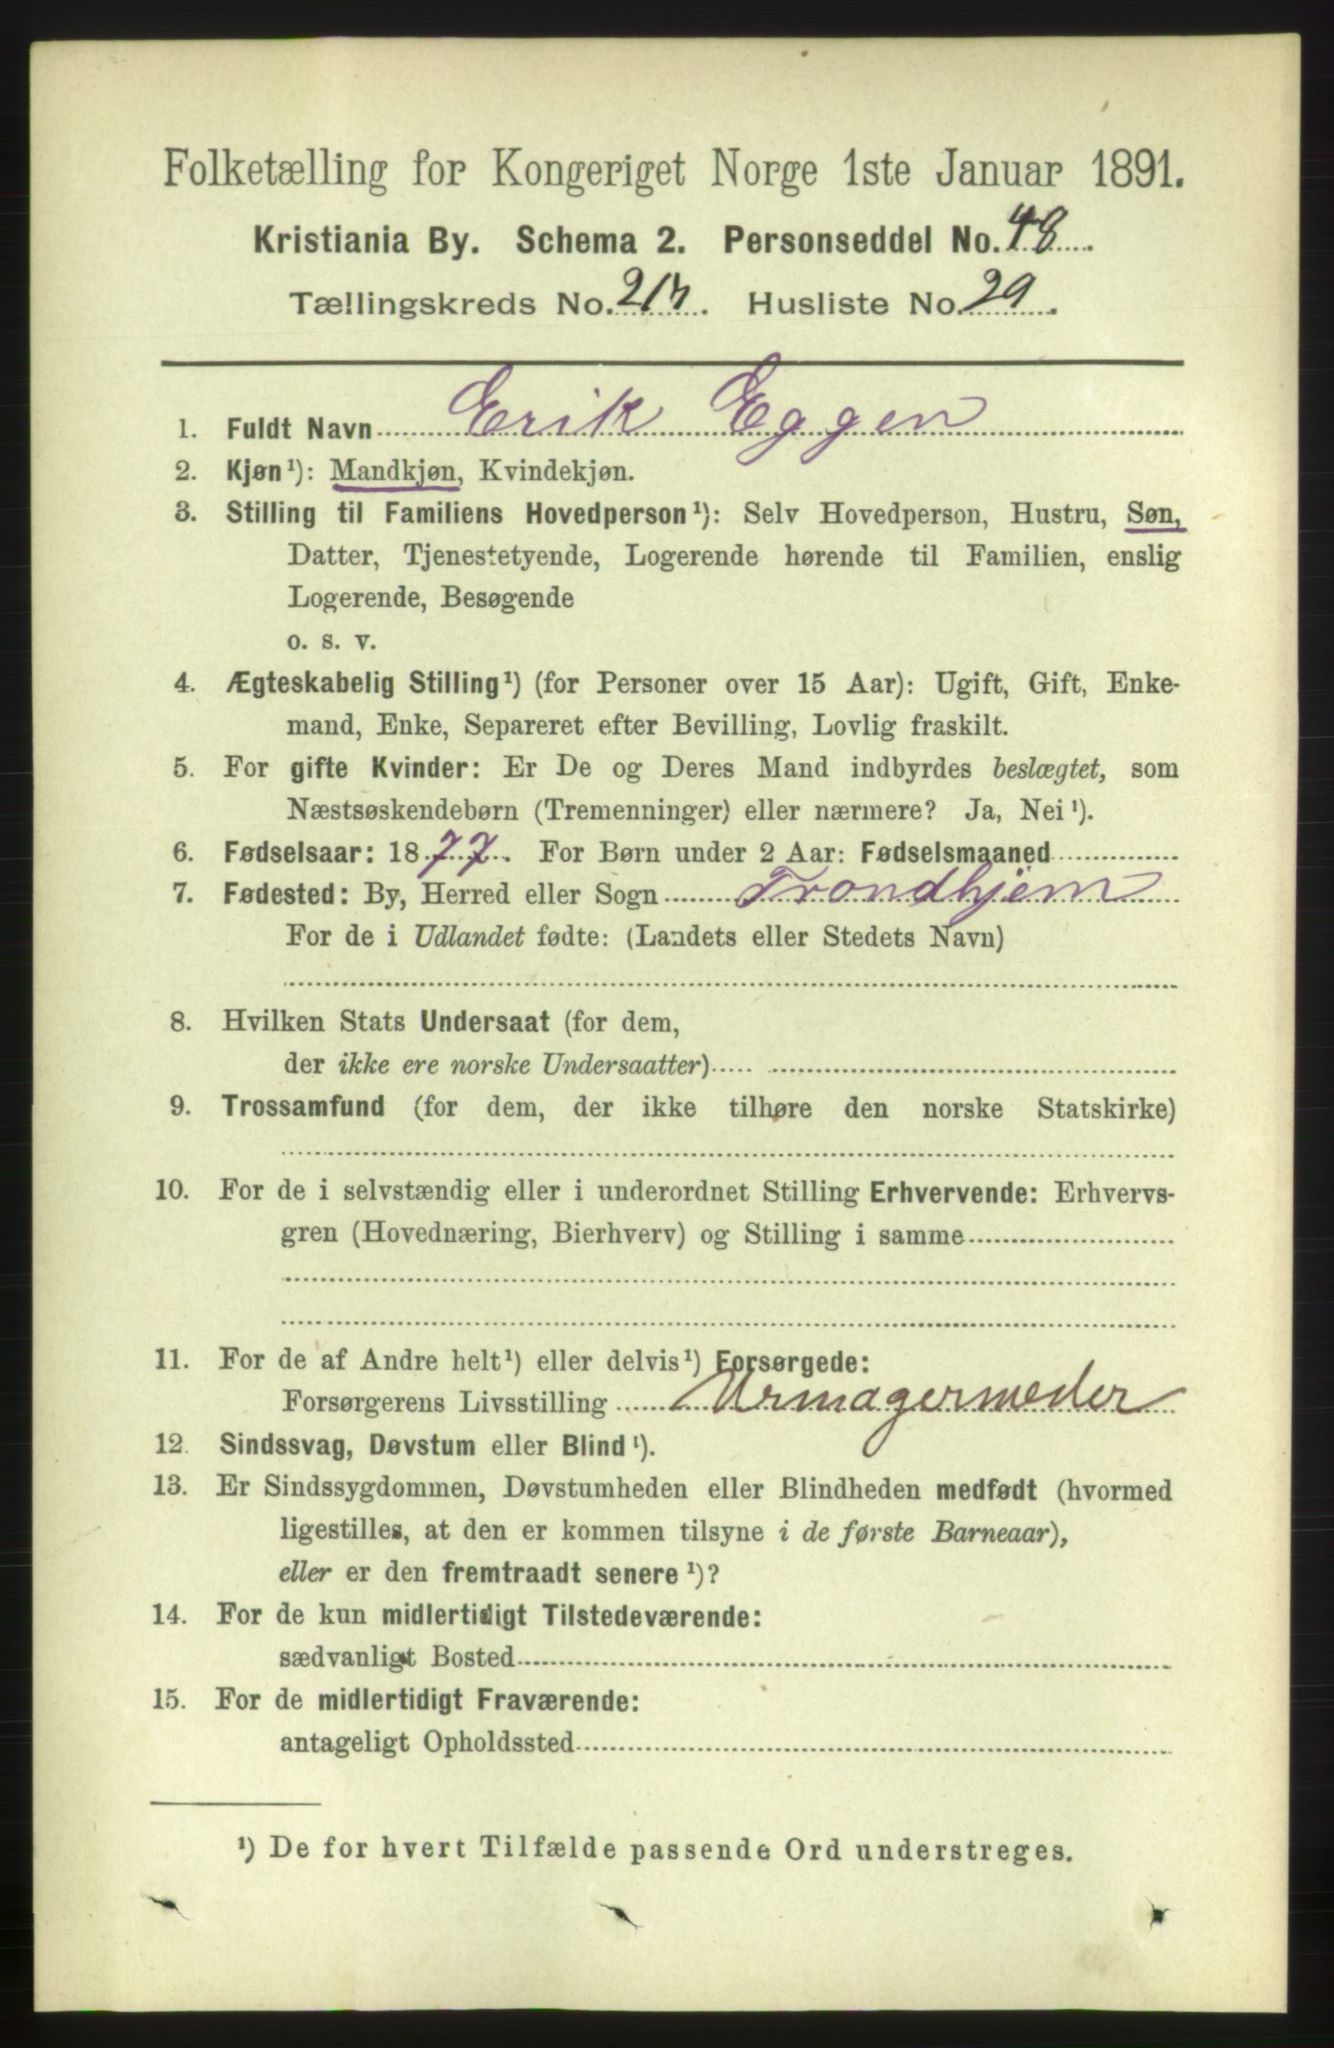 Folketælling for Kongeriget Norge 1ste Januar 1891.
Kristiania By. Schema 2. Personseddel No. 48
Tællingskreds No. 217. Husliste No. 29.
1. Fuldt Navn Erik Eggen
2. Kjøn¹): Mandkjøn, Kvindekjøn.
3. Stilling til Familiens Hovedperson¹): Selv Hovedperson, Hustru, Søn,
Datter, Tjenestetyende, Logerende hørende til Familien, enslig
Logerende, Besøgende
o. s. v.
4. Ægteskabelig Stilling¹) (for Personer over 15 Aar): Ugift, Gift, Enke-
mand, Enke, Separeret efter Bevilling, Lovlig fraskilt.
5. For gifte Kvinder: Er De og Deres Mand indbyrdes beslægtet, som
Næstsøskendebørn (Tremenninger) eller nærmere? Ja, Nei¹).
6. Fødselsaar: 1877. For Børn under 2 Aar: Fødselsmaaned
7. Fødested: By, Herred eller Sogn Trondhjem
For de i Udlandet fødte: (Landets eller Stedets Navn)
8. Hvilken Stats Undersaat (for dem,
der ikke ere norske Undersaatter)
9. Trossamfund (for dem, der ikke tilhøre den norske Statskirke)
10. For de i selvstændig eller i underordnet Stilling Erhvervende: Erhvervs-
gren (Hovednæring, Bierhverv) og Stilling i samme
11. For de af Andre helt¹) eller delvis¹) Forsørgede:
Forsørgerens Livsstilling Urmagermeder
12. Sindssvag, Døvstum eller Blind¹).
13. Er Sindssygdommen, Døvstumheden eller Blindheden medfødt (hvormed
ligestilles, at den er kommen tilsyne i de første Barneaar),
eller er den fremtraadt senere¹)?
14. For de kun midlertidigt Tilstedeværende:
sædvanligt Bosted
15. For de midlertidigt Fraværende:
antageligt Opholdssted
¹) De for hvert Tilfælde passende Ord understreges.